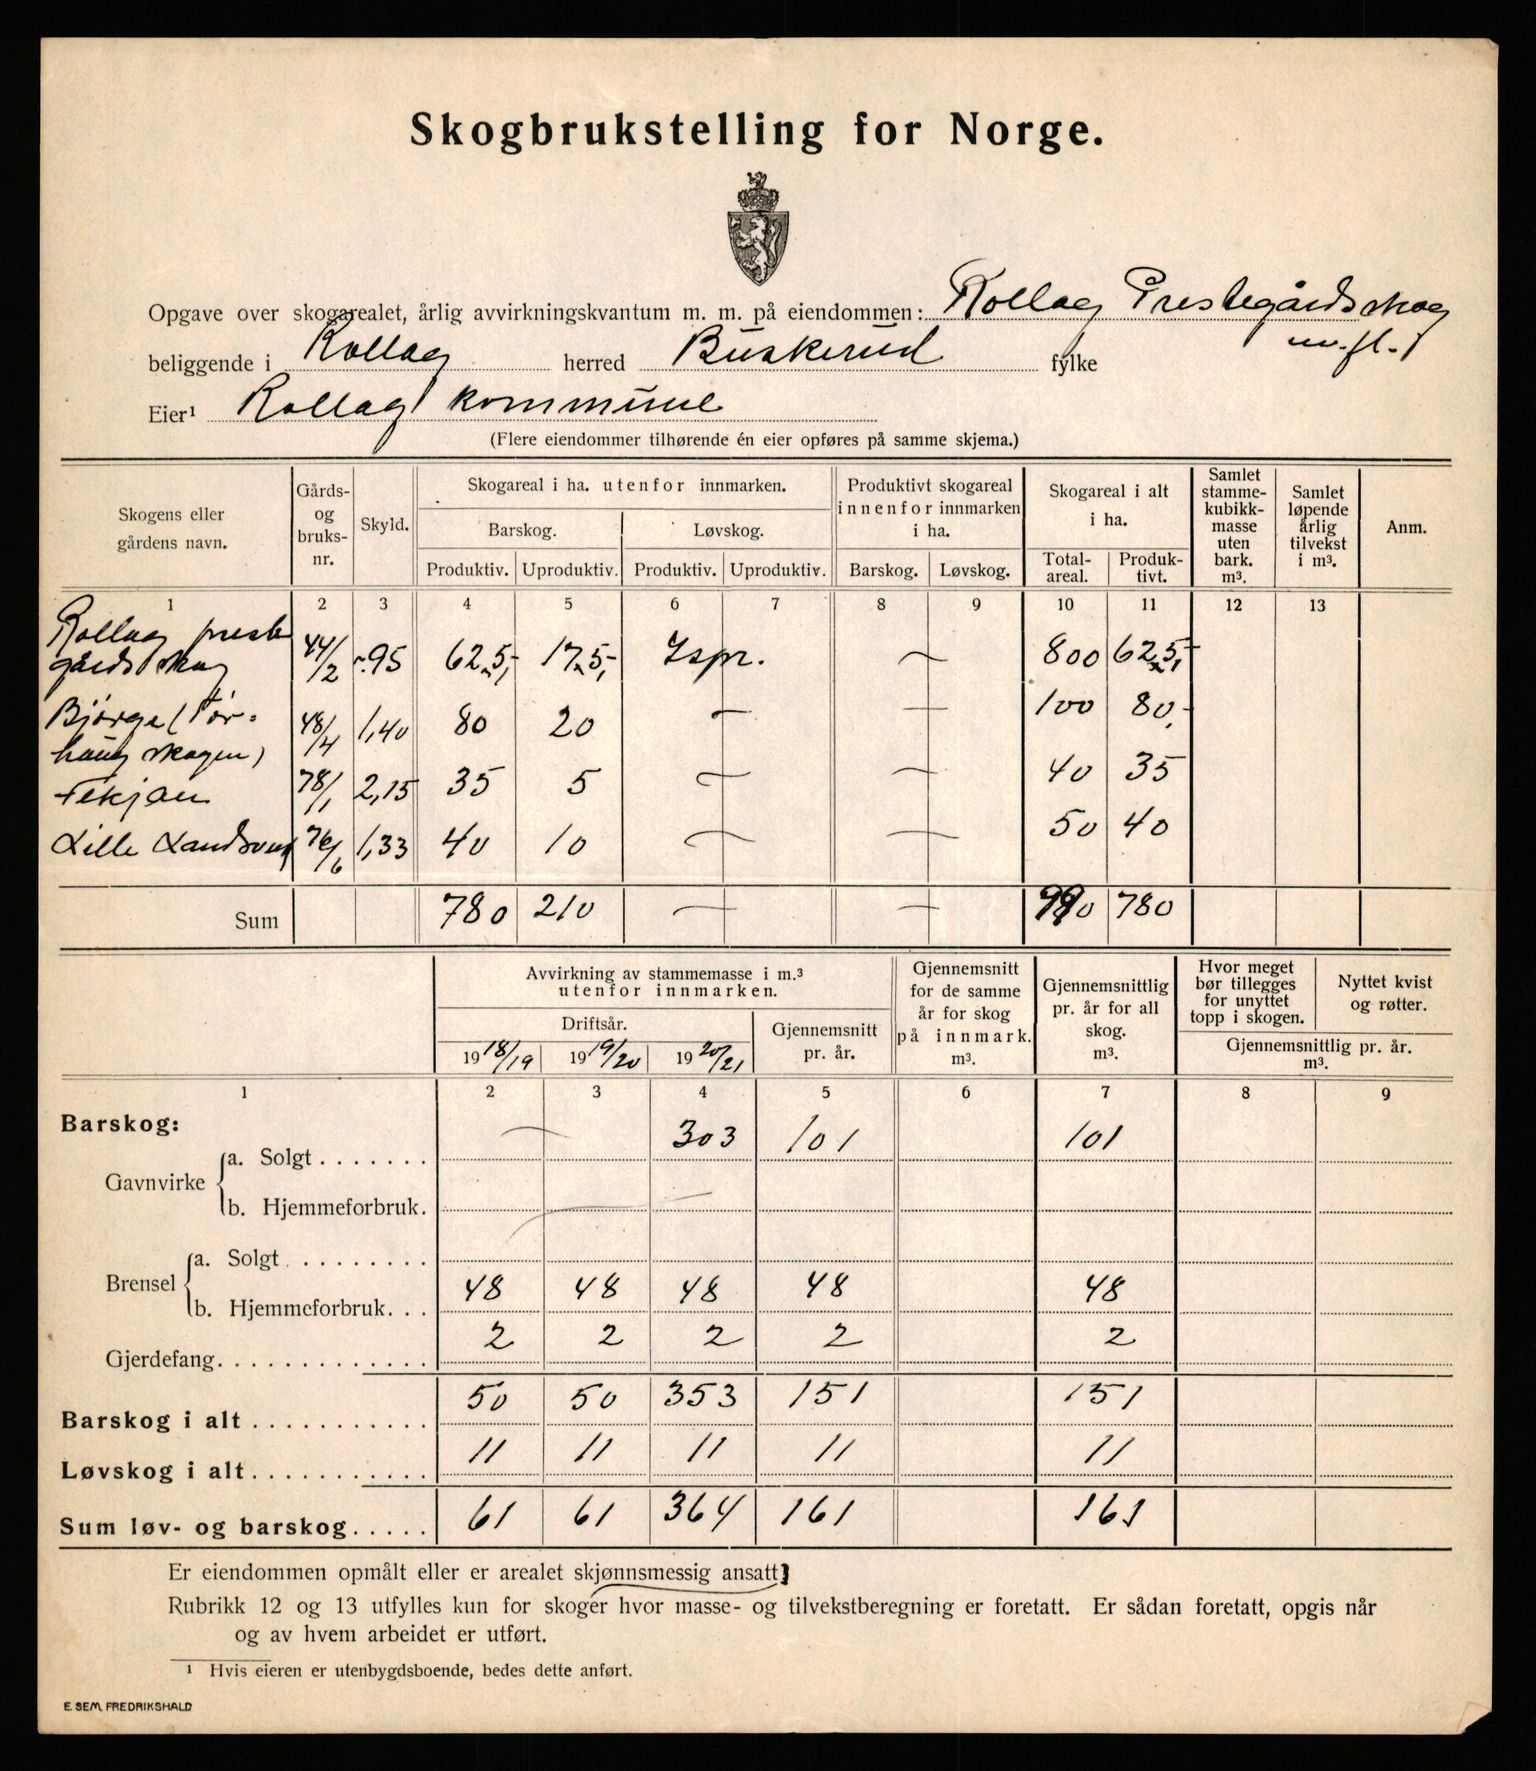 Skogbrukstelling for Norge.
Opgave over skogarealet, årlig avvirkningskvantum m. m. på eiendommen: Rollag Prestegårdsskog
m. fl.
beliggende i Rollag herred Buskerud fylke
Eier¹ Rollag kommune
(Flere eiendommer tilhørende én eier opføres på samme skjema.)
Skogens eller gårdens navn. Gårds- og bruks- nr. Skyld. Skogareal i ha. utenfor innmarken. Produktivt skogareal innenfor innmarken i ha. Skogareal i alt i ha. Samlet stamme- kubikk- masse uten bark. m³. Samlet løpende årlig tilvekst i m³. Anm.
Barskog. Løvskog.
Produktiv. Uproduktiv. Produktiv. Uproduktiv. Barskog. Løvskog. Total- areal. Produk- tivt.
1 2 3 4 5 6 7 8 9 10 11 12 13
Rollag preste
gårdsskog 44/2 -.95 625,- 175,- Ispr. — 800 625,-
Bjørge (Tør-
haug skogen) 48/4 1,40 80 20 — — 100 80,-
Fekjan 78/1 2,15 35 5 — — 40 35
Lille Landsverk 76/6 1,33 40 10 — — 50 40
Sum 780 210 — — 990 780
Avvirkning av stammemasse i m.³ utenfor innmarken. Gjennemsnitt for de samme år for skog på innmark. m³. Gjennemsnittlig pr. år for all skog. m³. Hvor meget bør tillegges for unyttet topp i skogen. Nyttet kvist og røtter.
Driftsår. Gjennemsnitt pr. år. Gjennemsnittlig pr. år. m³.
19 18/19 19 19/20 19 20/21
1 2 3 4 5 6 7 8 9
Barskog:
Gavnvirke
a. Solgt . . . . . . . — 303 101 101
b. Hjemmeforbruk.
Brensel
a. Solgt . . . . . . . .
b. Hjemmeforbruk. . . 48 48 48 48 48
Gjerdefang. . . . . . . . . . . . . 2 2 2 2 2
Barskog i alt . . . . . . . . . . . 50 50 353 151 151
Løvskog i alt. . . . . . . . . . . 11 11 11 11 11
Sum løv- og barskog. . . . . 61 61 364 161 161
Er eiendommen opmålt eller er arealet skjønnsmessig ansatt?
Rubrikk 12 og 13 utfylles kun for skoger hvor masse- og tilvekstberegning er foretatt. Er sådan foretatt, opgis når
og av hvem arbeidet er utført.
¹ Hvis eieren er utenbygdsboende, bedes dette anført.
E. SEM, FREDRIKSHALD